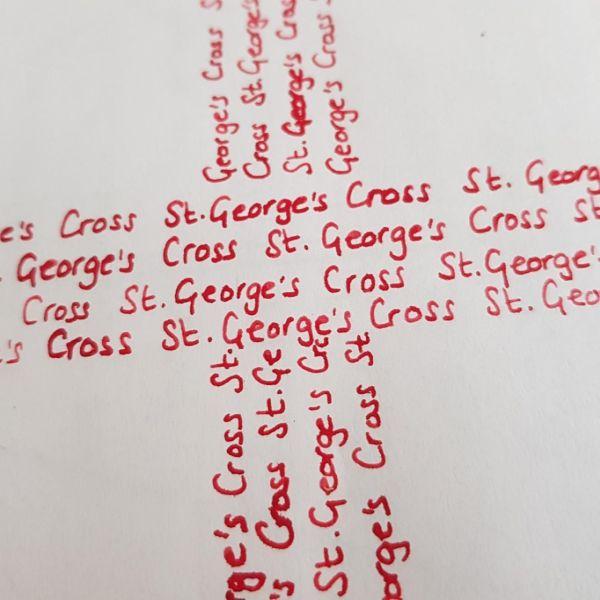 George's Cross S
Cross St. George's
St. George's Cross
George's Cross S
e's Cross St. George's Cross St. Georg
. George's Cross St. George's Cross St
Cross St. George's Cross St. George's
's Cross St. George's Cross St. Geo
rge's Cross St.
's Cross St. Ge
St. George's Cr
orge's Cross St